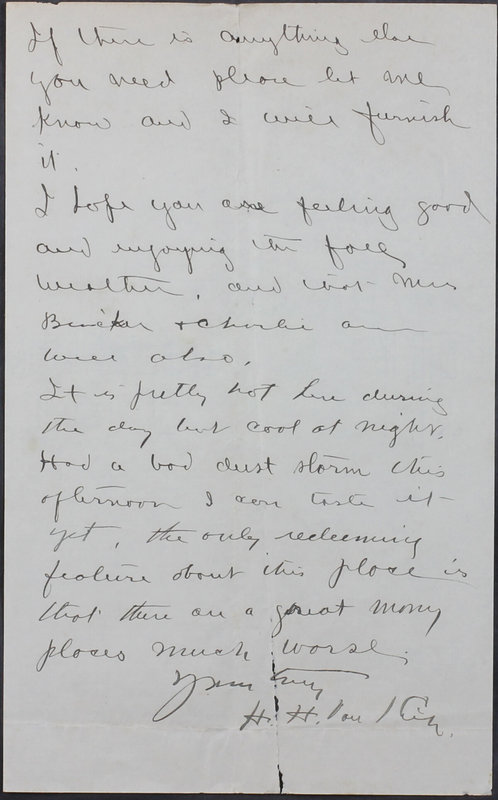 If there is anything else
you need please let me
know and I will furnish
it.
I hope you are feeling good
and enjoying the fall
weather, and that Mrs
& Charlie are
well also.
It is pretty hot here during
the day but cool at night.
Had a bad dust storm this
afternoon I can taste it
yet, the only redeeming
feature about this place is
that there are a great many
places much worse.
Yours truly
H. H. Van